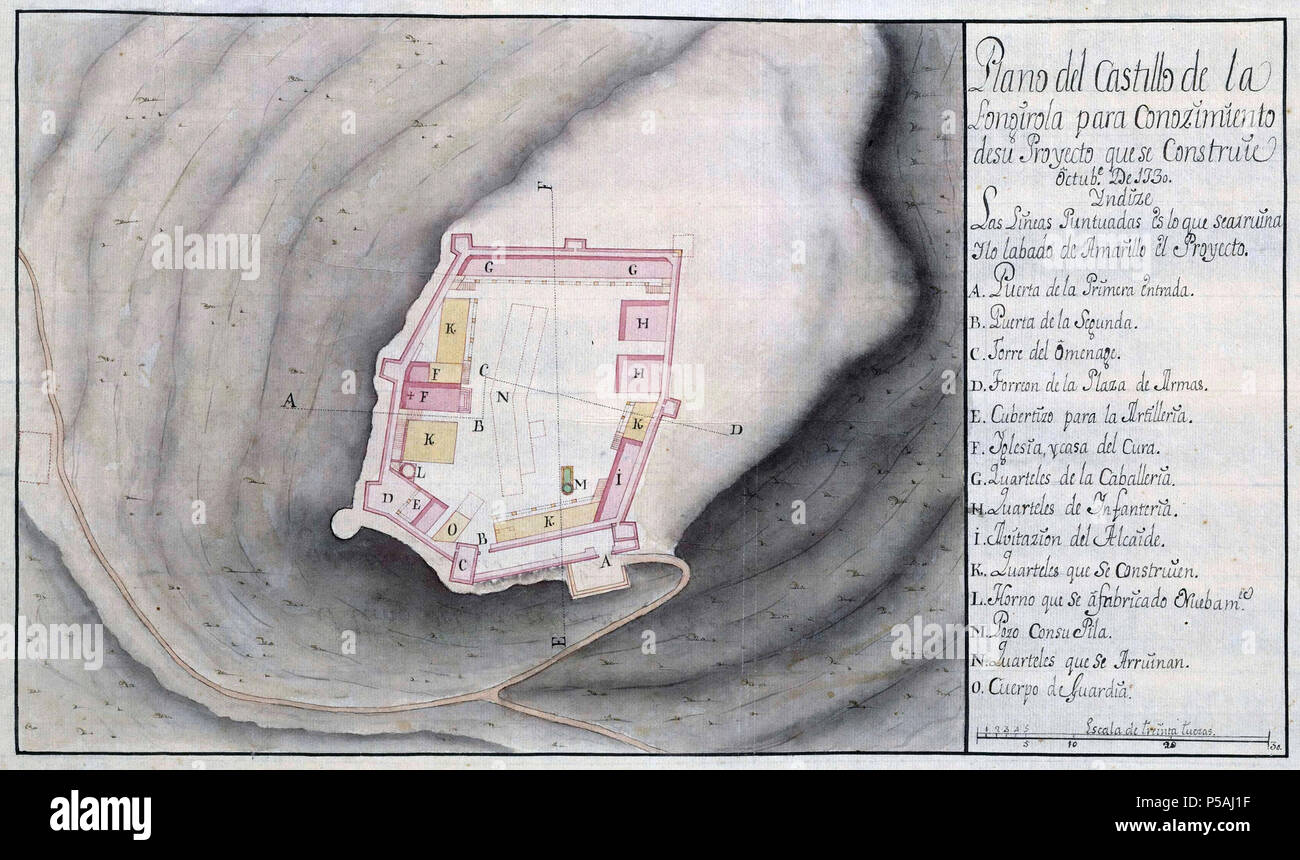 Plano del Castillo de la
Fongirola para Conozimiento
desu Proyecto que se Construie
Octub.e De 1730.
Yndize
Las Lineas Puntuadas es lo que searruina
Y lo labado de Amarillo el Proyecto.
A. Puerta de la Primera entrada.
B. Puerta de la Segunda.
C. Torre del Omenage.
D. Torreon de la Plaza de Armas.
E. Cubertizo para la Artilleria.
F. Iglesia, y casa del Cura.
G. Quarteles de la Caballeria.
H. Quarteles de Infanteria.
i. Avitazion del Alcaide.
K. Quarteles que Se Construien.
L. Horno que Se a fabricado Nuebam.te
M. Pozo Consu Pila.
N. Quarteles que Se Arruinan.
O. Cuerpo de Guardia.
Escala de treinta tuezas.
1 2 3 4 5
5 10 20 30.
F
G G
K H
F C H
F N
A B K D
K
L M i
D E
O K
B
C A
E
alamy
Image ID: P5AJ1F
www.alamy.com